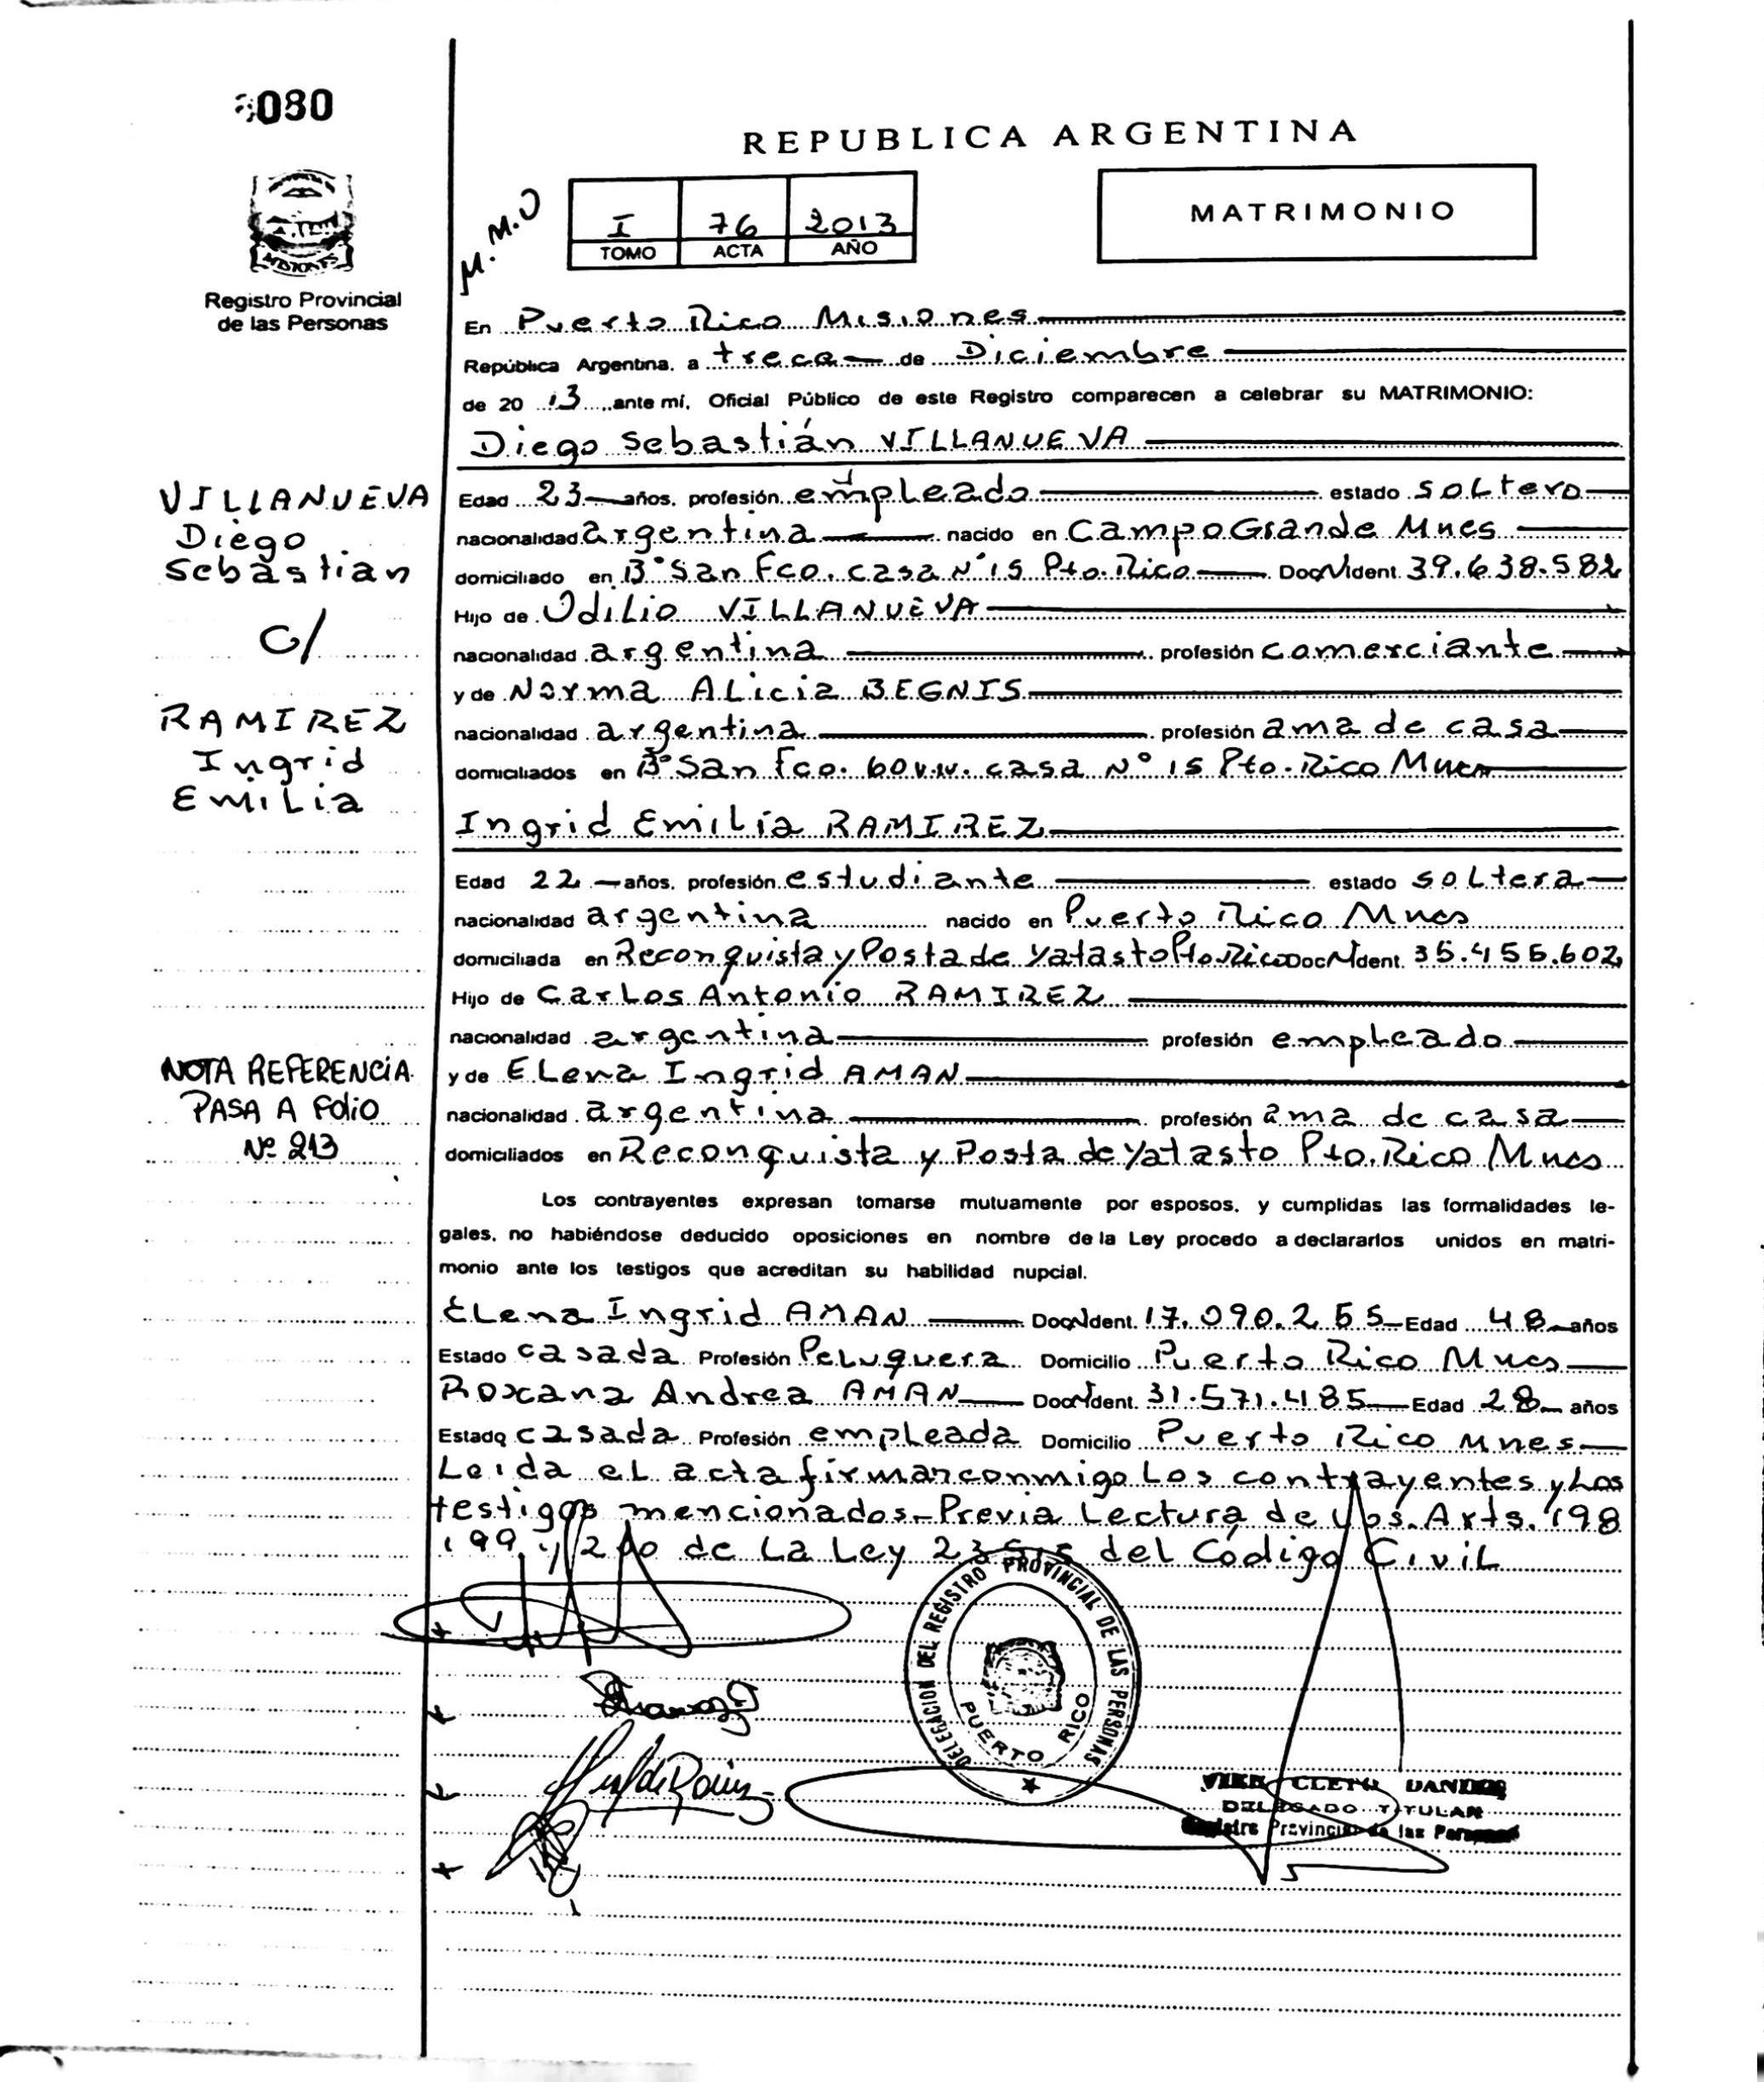 080
REPUBLICA ARGENTINA
M.M.O
I 76 2013
TOMO ACTA AÑO
MATRIMONIO
MISIONES
Registro Provincial
de las Personas
En Puerto Rico Misiones
República Argentina, a trece de Diciembre
de 20 13 ante mí, Oficial Público de este Registro comparecen a celebrar su MATRIMONIO:
Diego Sebastián VILLANUEVA
VILLANUEVA
Diego
Sebastian
C/
RAMIREZ
Ingrid
EMILia
Edad 23 años, profesión empleado estado soltero
nacionalidad argentina nacido en Campo Grande Mnes
domiciliado en B° San Fco. casa N° 15 Pto. Rico Doc Ident. 39.638.582
Hijo de Odilio VILLANUEVA
nacionalidad argentina profesión comerciante
y de Norma Alicia BEGNIS
nacionalidad argentina profesión ama de casa
domiciliados en B° San Fco. 60 viv. casa N° 15 Pto. Rico Mnes
Ingrid Emilia RAMIREZ
Edad 22 años, profesión estudiante estado soltera
nacionalidad argentina nacido en Puerto Rico Mnes
domiciliada en Reconquista y Posta de Yatasto Pto. Rico Doc Ident. 35.455.602
Hijo de Carlos Antonio RAMIREZ
nacionalidad argentina profesión empleado
y de Elena Ingrid AMAN
nacionalidad argentina profesión ama de casa
domiciliados en Reconquista y Posta de Yatasto Pto. Rico Mnes
NOTA REFERENCIA
PASA A Folio
Nº 213
Los contrayentes expresan tomarse mutuamente por esposos, y cumplidas las formalidades le-
gales, no habiéndose deducido oposiciones en nombre de la Ley procedo a declararlos unidos en matri-
monio ante los testigos que acreditan su habilidad nupcial.
Elena Ingrid AMAN Doc Ident. 17.090.255 Edad 48 años
Estado casada Profesión Peluquera Domicilio Puerto Rico Mnes
Roxana Andrea AMAN Doc Ident. 31.571.485 Edad 28 años
Estado casada Profesión empleada Domicilio Puerto Rico Mnes
Leida el acta firman conmigo los contrayentes y los
testigos mencionados-Previa Lectura de los Arts. 198
199 y 200 de La Ley 23515 del Código Civil
DELEGACION DEL REGISTRO PROVINCIAL DE LAS PERSONAS
PUERTO RICO
CLETO
DELEGADO TITULAR
Registro Provincial de las Personas